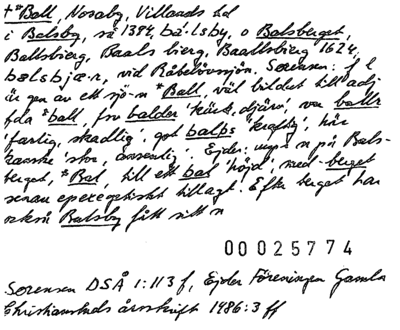 †*Ball, Nosaby, Villands hd
i Balsby, så 1384, bå·lsby, o Balsberget,
Ballsbierg, Baals bierg, Baallsbierg 1624,
bælsbjæ·r, vid Råbelövssjön. Sørensen: f l
är gen av ett sjö-n *Ball, väl bildat till adj
fda *ball, fvn baldr 'käck, djärv', var ballr
'farlig, skadlig', got balþs 'kraftig', här
kanske 'stor, ansenlig'. Ejder: urspr n på Bals-
berget, *Bal, till ett bal 'höjd', med -berget
senare epexegetiskt tillagt. Efter berget har
också Balsby fått sitt n
00025774
Sørensen DSÅ 1:113 f, Ejder Föreningen Gamla
Christianstads årsskrift 1986:3 ff